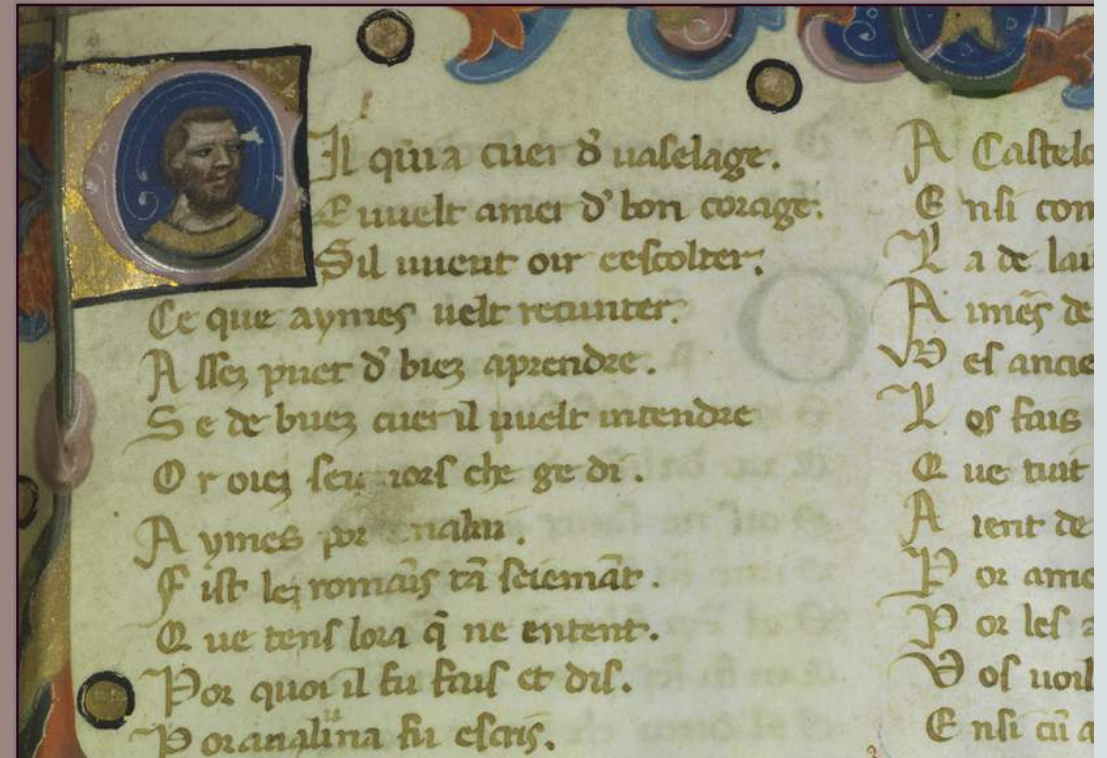 Il qui a cuer d' uaselage.
E uuelt amer d' bon corage.
Sil uuent oir eescolter.
Ce que aymes uelt recunter.
A ssez puet d' biez aprendre.
S e de buez cuer il uuelt intendre
O r oiez che ge di.
A ymes por
F ist lez romãs tã seiemãt.
Q ue tens lora q̃ ne entent.
P or quoi il fu fais et dis.
P or fu escris.
A Castelo
E nsi com
L a de lau
A imẽs de
V es ancie
L os fais
Q ue tuit
A ient de
P or ame
P or les a
V os uoil
E nsi cũ a